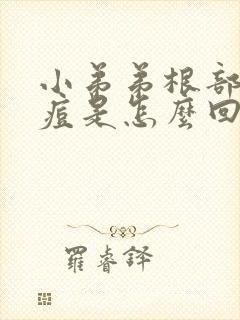 小弟弟根部
痘是怎麼回
羅睿鐸